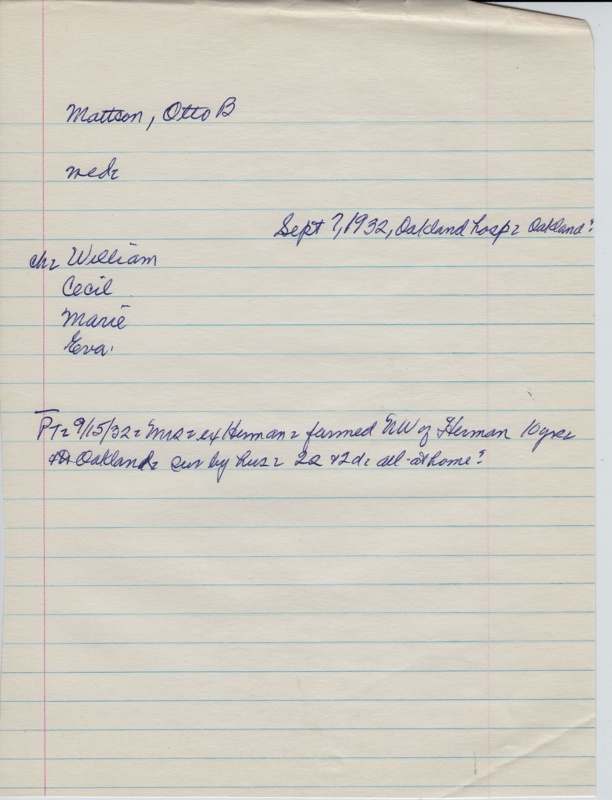 Mattson, Otto B
med=
Sept 7, 1932, Oakland hosp= Oakland?
ch= William
Cecil
Marie
Eva.
PT= 9/15/32= Mrs= ex Herman= farmed NW of Herman 10 yrs=
Oakland= sur by hus= 2s & 2d= all at home?